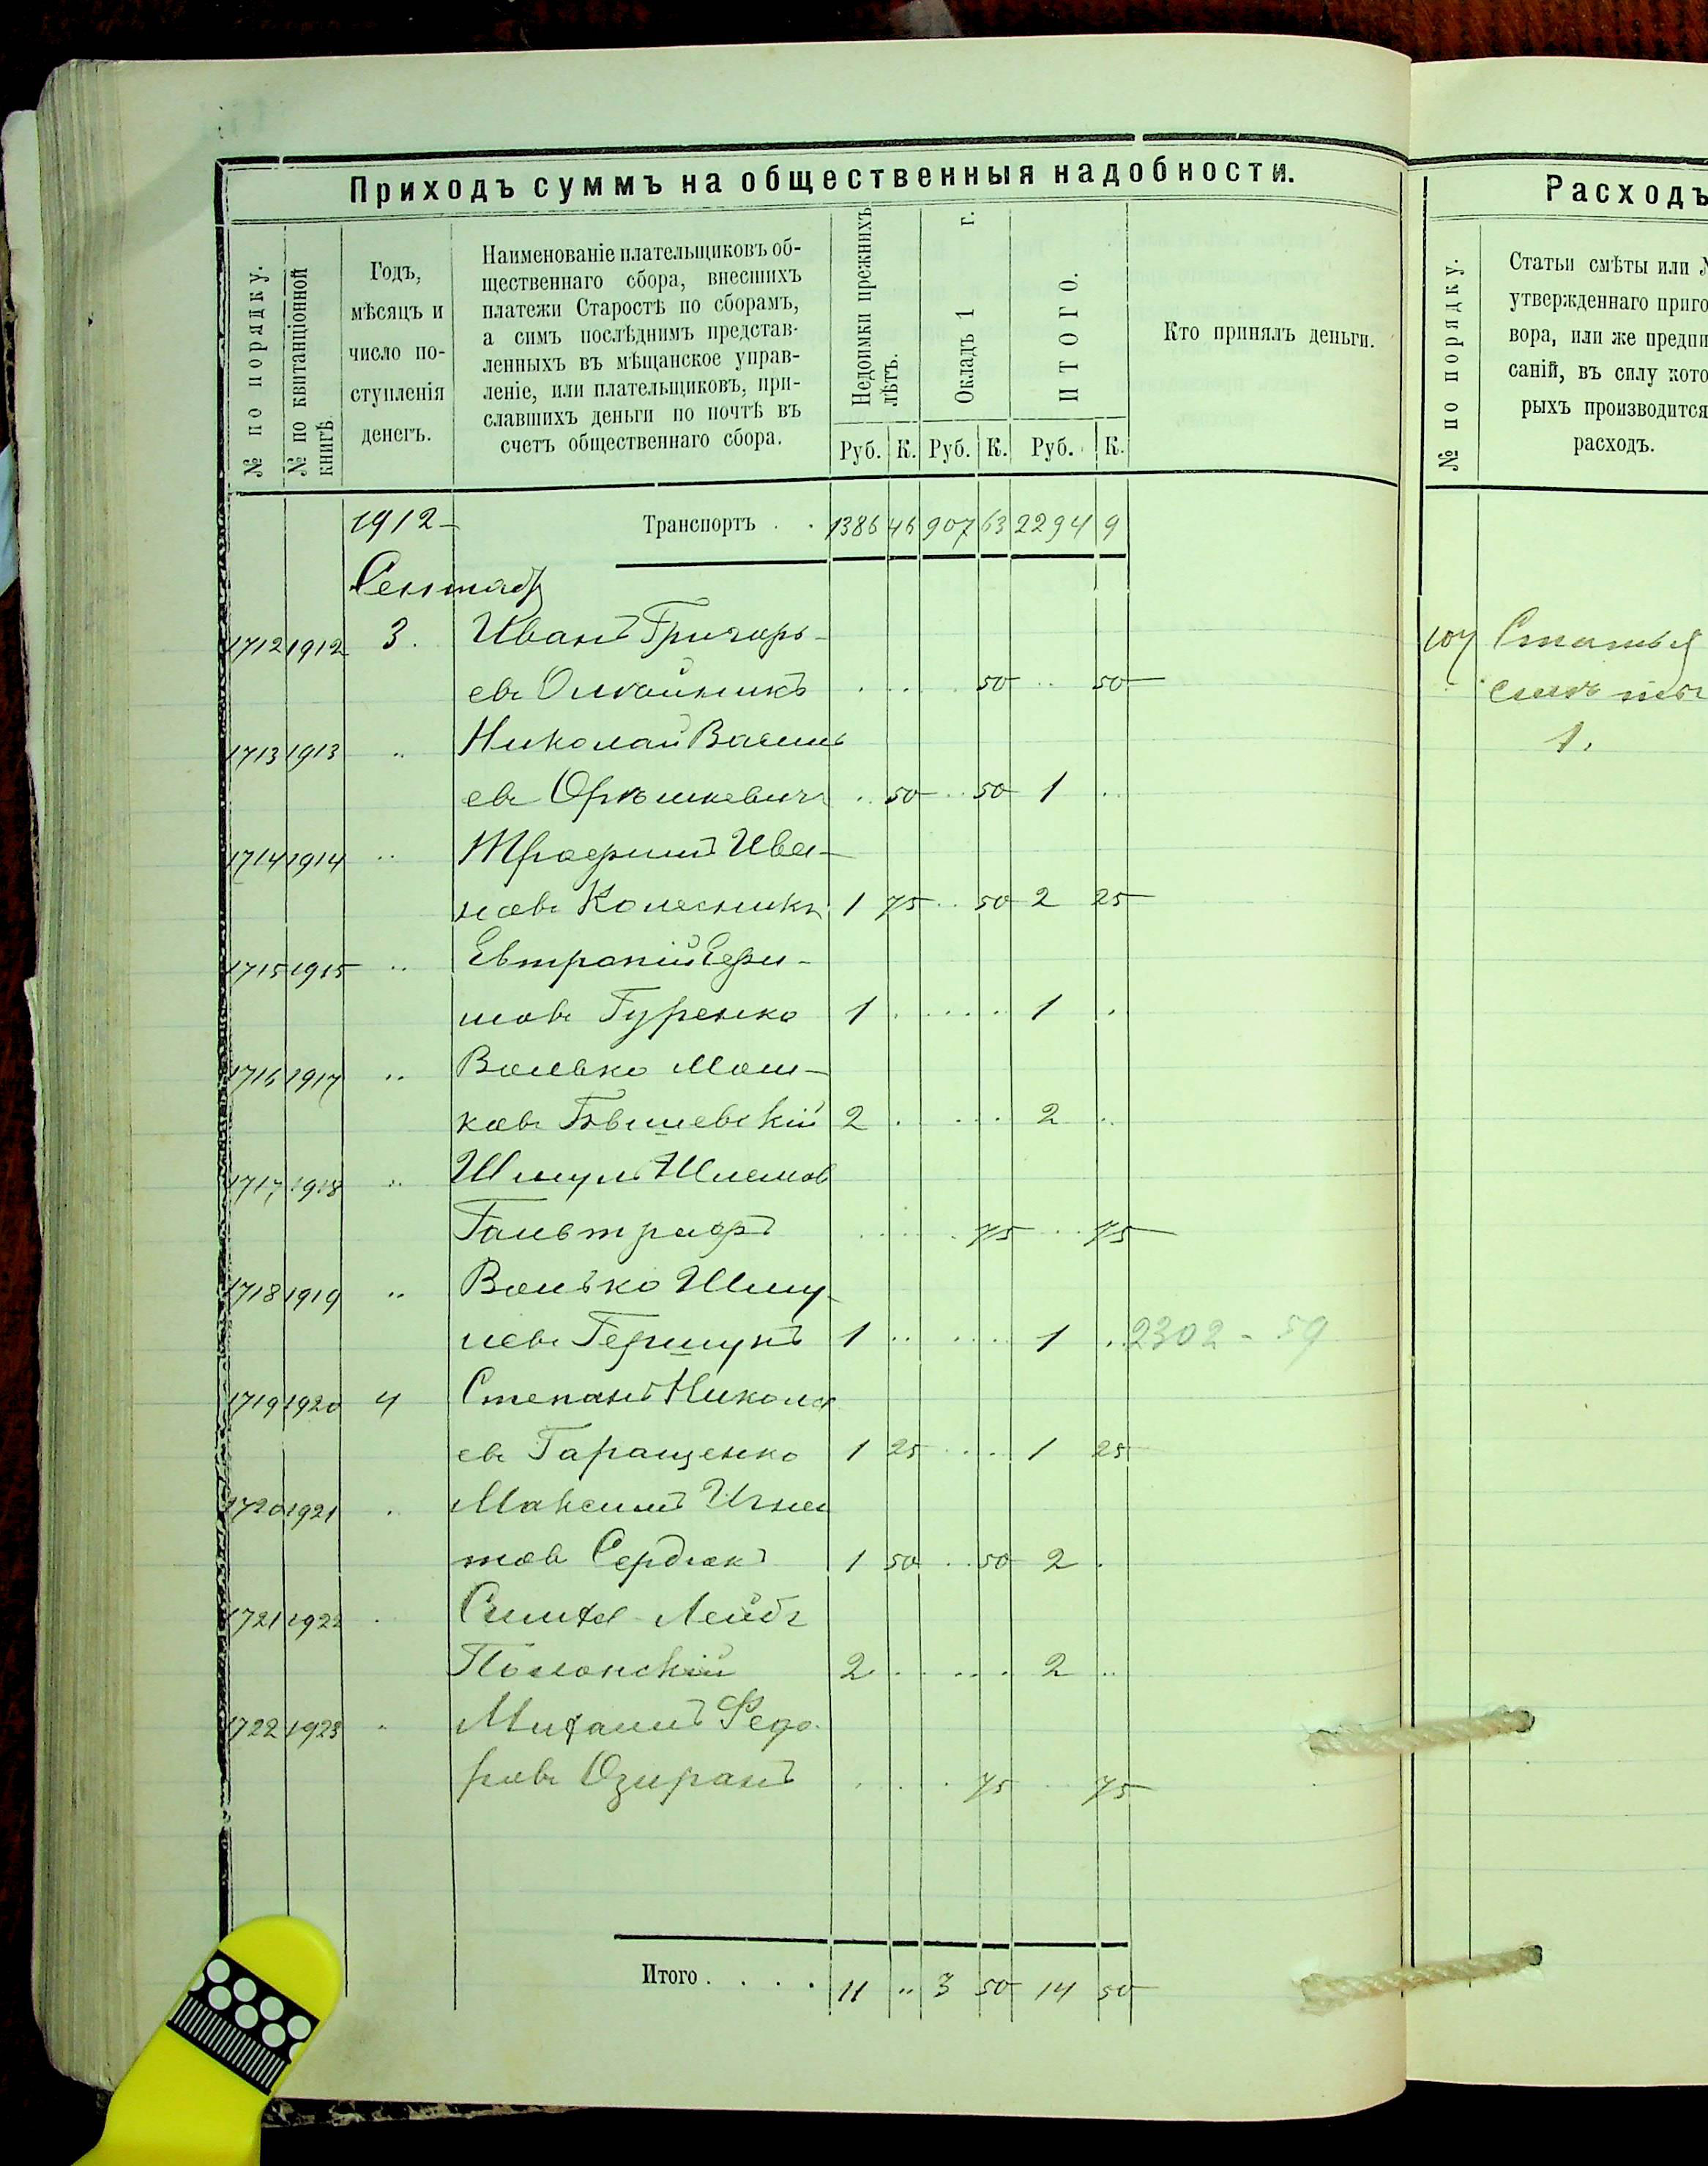 Приходъ суммъ на общественныя надобности.
№ по порядку.
№ по квитанціонной книгѣ
Годъ, мѣсяцъ и число поступленія денегъ.
Наименованіе плательщиковъ об-
щественнаго сбора, внесшихъ
платежи Старостѣ по сборамъ,
а симъ послѣднимъ представ-
ленныхъ въ мѣщанское управ-
леніе, или плательщиковъ, при-
славшихъ деньги по почтѣ въ
счетъ общественнаго сбора.
Недоимки прежнихъ лѣтъ.
Окладъ 1 г.
ИТОГО.
Руб. К. Руб. К. Руб. К.
Кто принялъ деньги.
1912 Транспортъ . . 1386 46 907 63 2294 9
Сентяб
1712 1912 3. Иванъ Григорь-
евъ Олейникъ . . . . 50 . . 50
1713 1913 " Николай Василь
евъ . . 50 . . 50 1 . .
1714 1914 " Трофимъ Ива-
новъ Колесникъ 1 75 . . 50 2 25
1715 1915 " Евтропій Ефи-
мовъ Гуренко 1 . . . . . 1 .
1716 1917 " Волько Мош-
ковъ 2 . . . . 2 . .
1717 1918 " Шмуль Шлемов
. . . . . 75 . . 75
1718 1919 " Волько Шму-
левъ Гершунъ 1 . . . . . . 1 . . 2302 - 59
1719 1920 4 Степанъ Никола
евъ Гаращенко 1 25 . . . . 1 25
1720 1921 " Максимъ Игна
товъ Сердюкъ 1 50 . . 50 2 .
1721 1922 " Симха Лейбъ
Полонскій 2 . . . . . 2 . .
1722 1923 " Михаилъ Федо
ровъ Озиранъ . . . . 75 . . 75
Итого . . . . 11 " 3 50 14 50
Расходъ
№ по порядку.
Статьи смѣты или №
утвержденнаго приго
вора, или же предпи
саній, въ силу кото
рыхъ производится
расходъ.
107 Статья
смѣты
1.